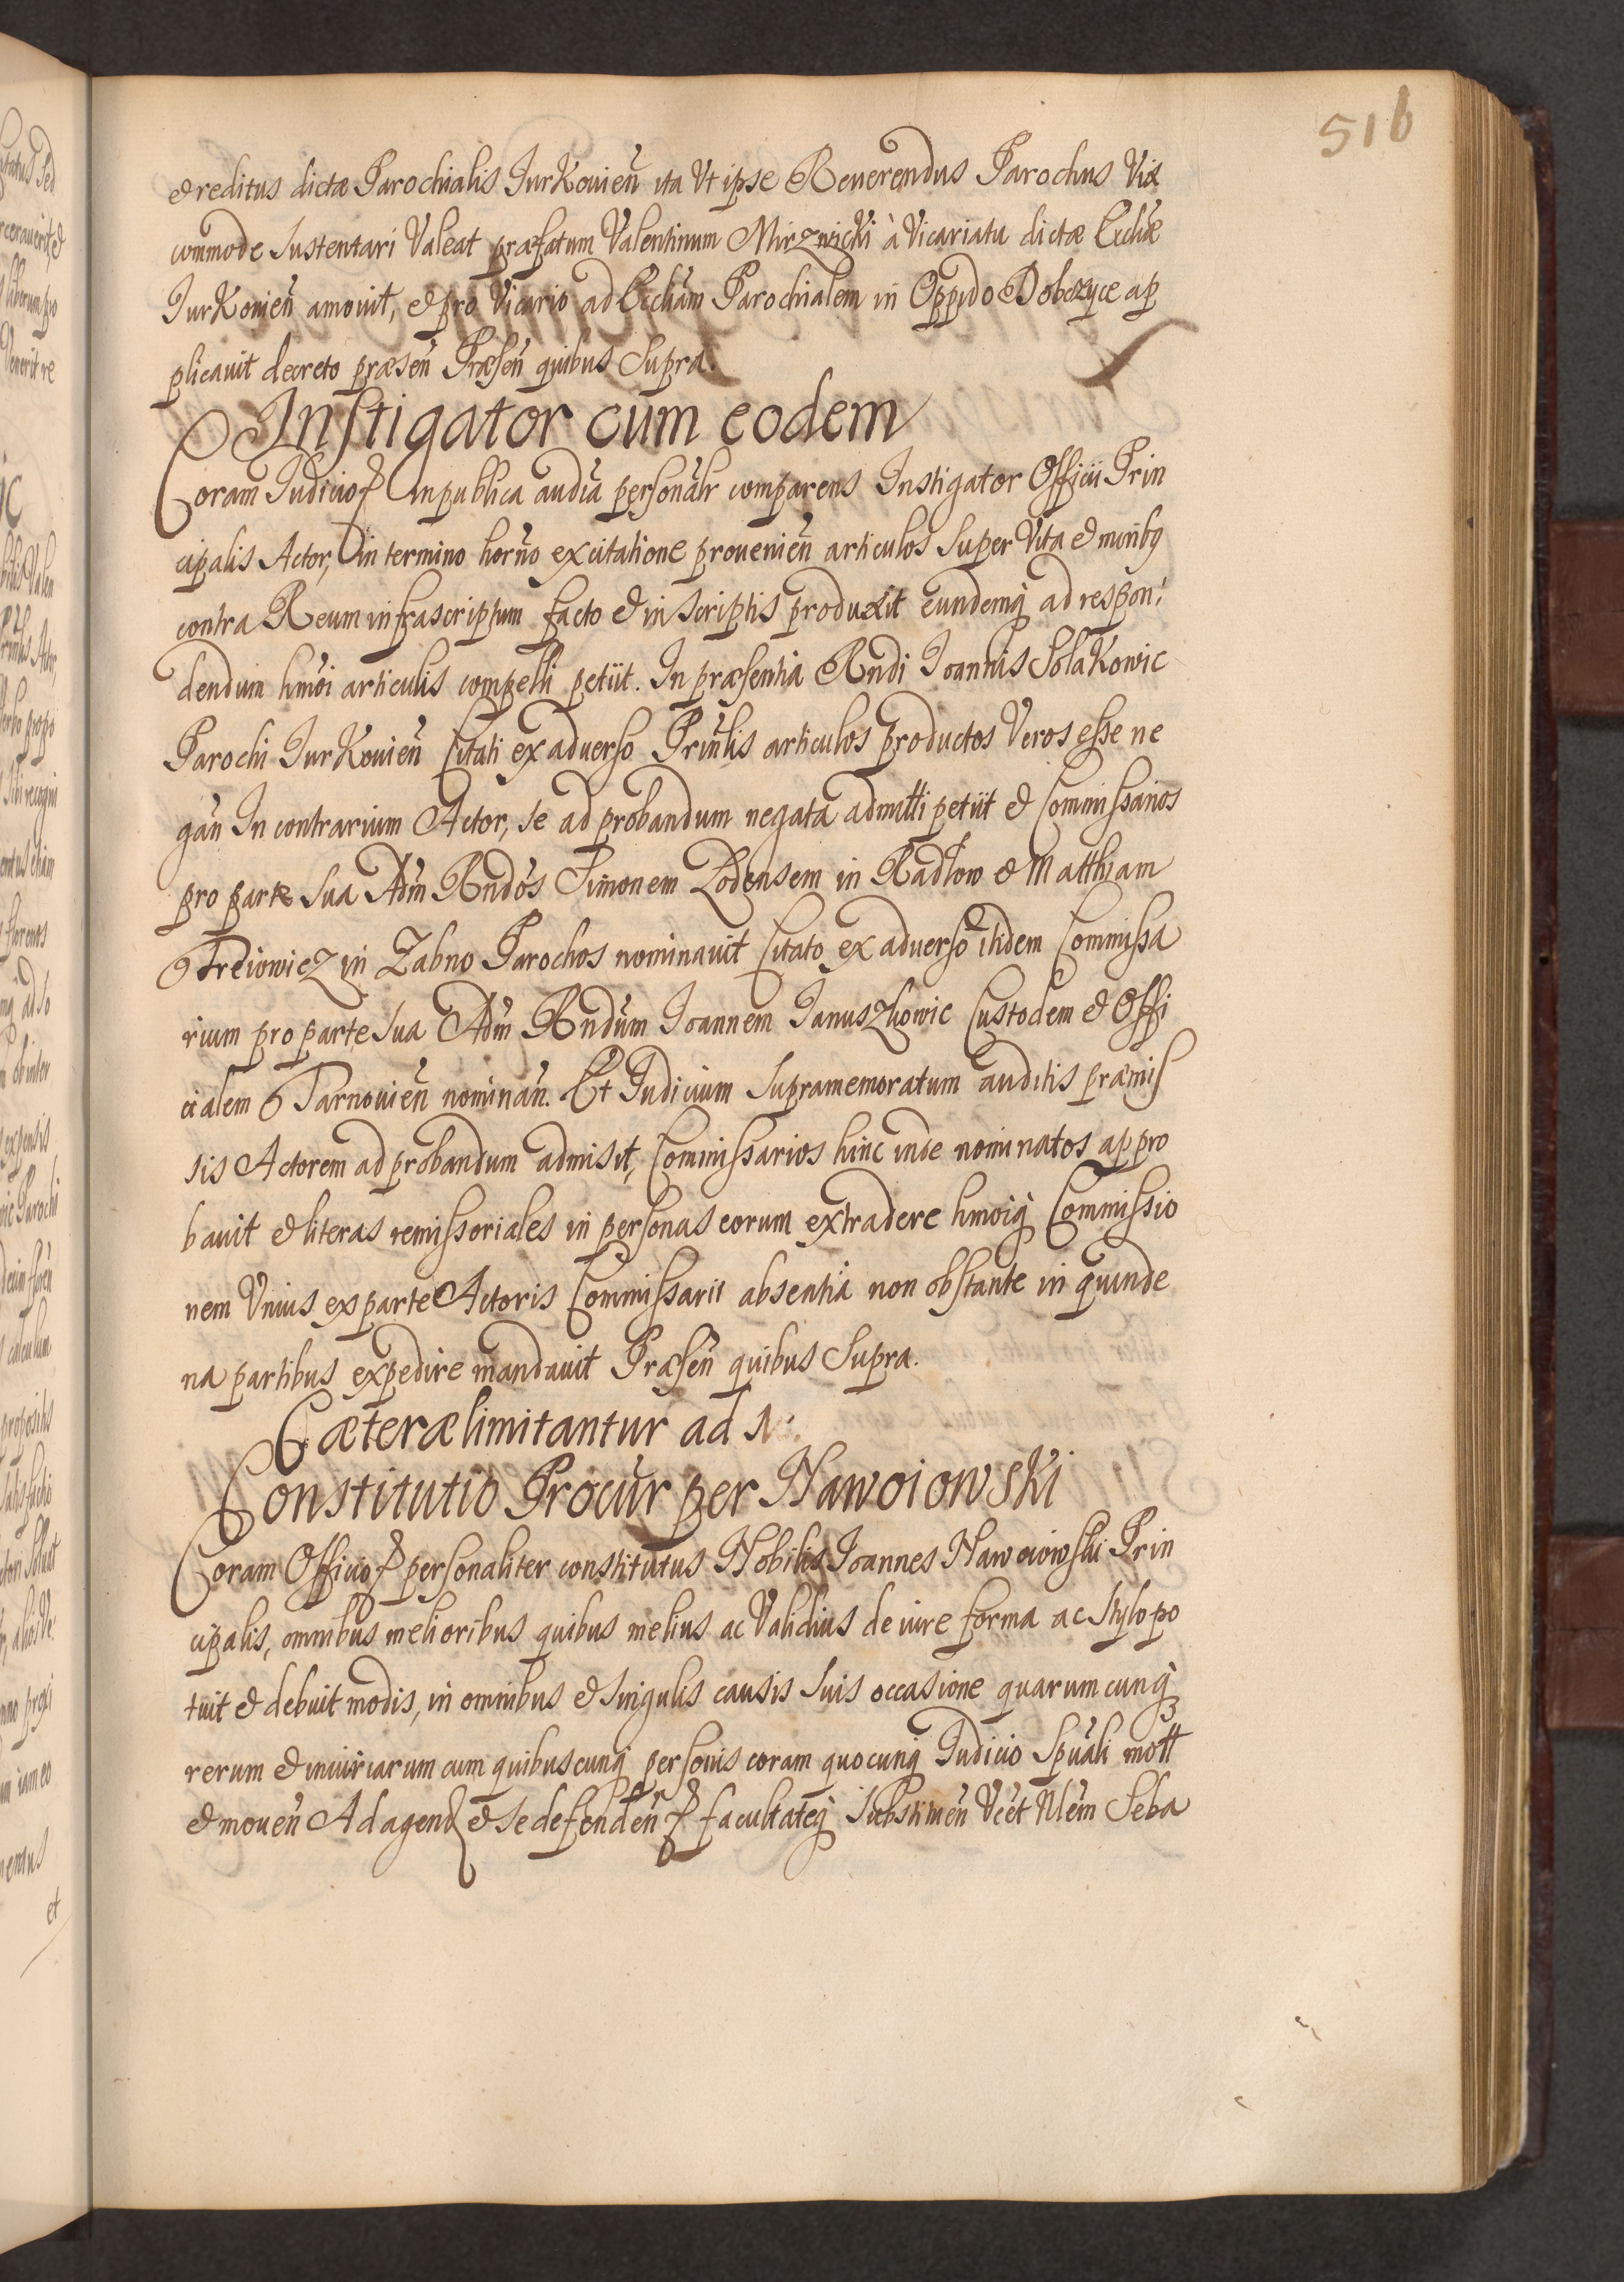 516
& reditus dictæ Parochialis Jurkouien̄ ita Vt ipse Reuerendus Parochus Vix
commode sustentari Valeat præfatum Valentinum Mirzwicki à Vicariatu dictæ Ecclīæ
Jurkouien̄ amouit, & pro Vicario ad Eccliām Parochialem in Oppido Dobczyce ap
plicauit decreto præsen̄ Præsen̄ quibus Supra.
Instigator cum eodem
Coram Judicio in publica audīa personālr comparens Instigator Officii Prin
cipalis Actor, in termino horno ex citatione prouenien̄ articulos super Vita & morib9
contra Reum infrascriptum facto & in scriptis produxit eundemq̀ ad respon
dendum hmōi articulis compelli petiit. In præsentia Rndi Joannis Solakowic
Parochi Jurkouien̄ Citati ex aduerso Prin̄lis articulos productos Veros esse ne
gan̄ In contrarium Actor, se ad probandum negata admitti petiit & Commissarios
pro parte sua Adm̄ Rndōs Simonem Zodensem in Radłow & Matthiam
Treiowicz in Zabno Parochos nominauit Citato ex aduerso itidem Commissa
rium pro parte sua Adm̄ Rndūm Joannem Januszkowic Custodem & Offi
cialem Tarnouien̄ nominan̄. Et Judicium supramemoratum auditis præmis
sis Actorem ad probandum admisit, Commissarios hinc inde nominatos appro
bauit & literas remissoriales in personas eorum extradere hmōiq̀ Commissio
nem Vnius ex parte Actoris Commissarii absentia non obstante in quinde
na partibus expedire mandauit Præsen̄ quibus Supra.
Cæteræ limitantur ad
Constitutio Procur̄ per Nawoiowski
Coram Officio personaliter constitutus Nobilis Joannes Nawoiowski Prin
cipalis, omnibus melioribus quibus melius ac Validius de iure forma ac stylo po
tuit & debuit modis, in omnibus & singulis causis suis occasione quarumcunq̀
rerum & iniuriarum cum quibuscunq̀ personis coram quocunq̀ Judicio Spuāli mott
& mouen̄ Ad agend & se defenden̄ facultateq̀ substituen̄ Vcēt Nlēm Seba